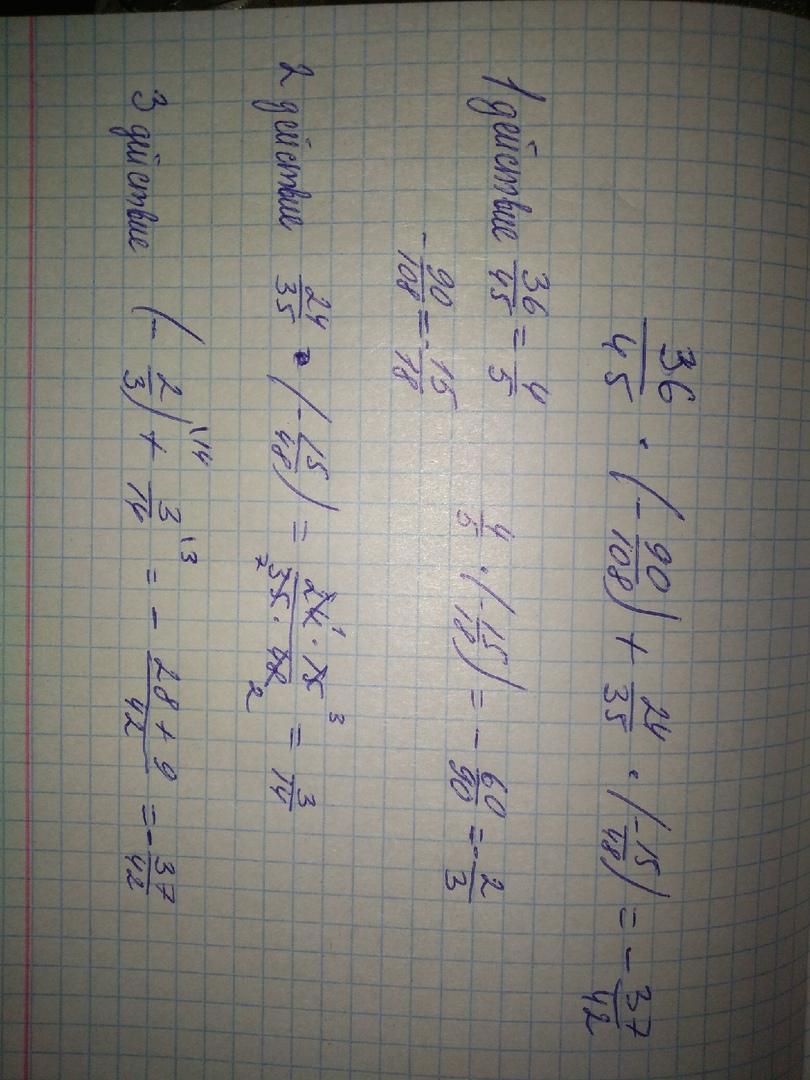 36/45 · (-90/108) + 24/35 · (-15/48) = -37/42
1 действие 36/45 = 4/5 4/5 · (-15/18) = -60/90 = -2/3
-90/108 = -15/18
2 действие 24/35 · (-15/48) = 24¹ · 15³ / 35₇ · 48₂ = 3/14
3 действие (-2/3)\14 + 3/14\3 = - 28+9/42 = -37/42